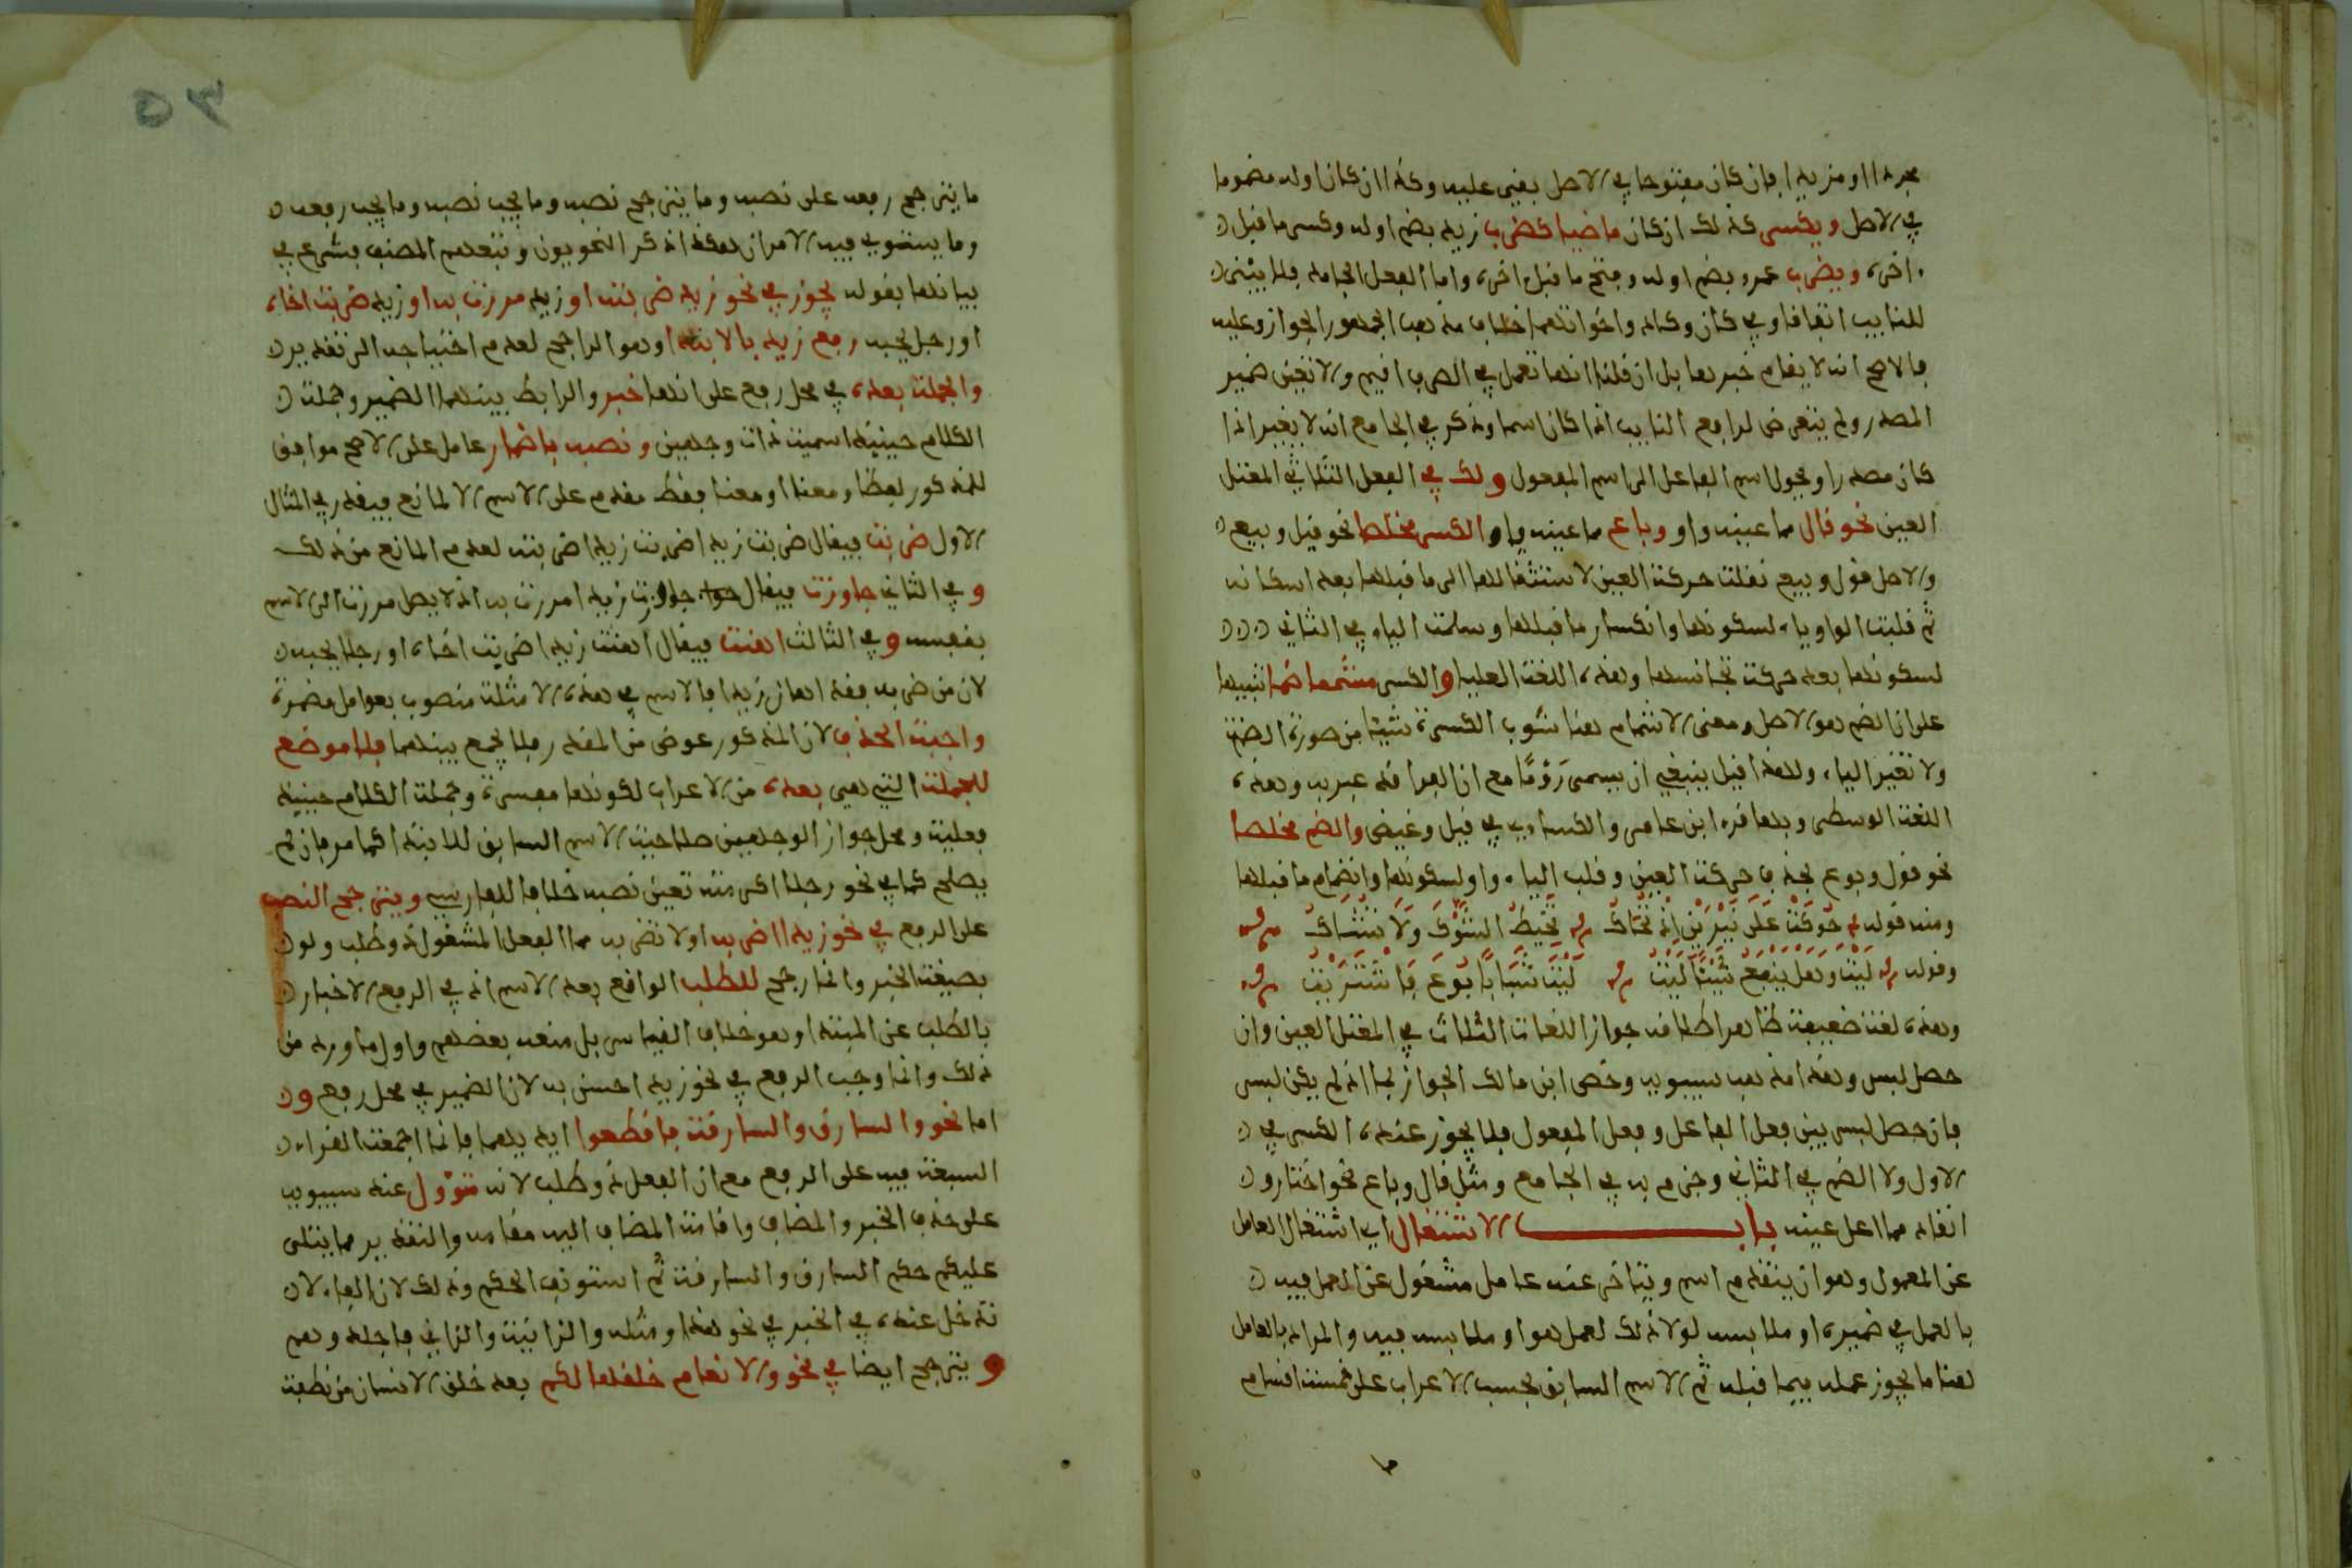 مجردا او مزيدا فان كان مفتوحا في الاصل بقي عليه وكذا ان كان اوله مضموما
في الاصل ويكسر كذلك ان كان ماضيا كضرب زيد بضم اوله وكسر ما قبل
اخره ويضرب عمرو بضم اوله وفتح ما قبل اخره واما الفعل الجامد فلا يبنى
للنايب اتفاقا وفي كان وكاد واخواتهما خلاف مذهب الجمهور الجواز وعليه
فالاصح انه لا يقام خبرها بل ان قلنا انها تعمل في الظرف اقيم ولا تعين ضمير
المصدر ولم يتعرض لرافع النايب اذا كان اسما وذكر في الجامع انه لا يغير اذا
كان مصدرا ويحول اسم الفاعل الى اسم المفعول ولك في الفعل الثلاثي المعتل
العين نحو قال مما عينه واو وباع مما عينه ياء الكسر مخلصا نحو قيل وبيع
والاصل قول وبيع نقلت حركة العين لاستثقالها الى ما قبلها بعد اسكانه
ثم قلبت الواو ياء لسكونها وانكسار ما قبلها وسلمت الياء في الثاني
لسكونها بعد حركة تجانسها وهذه اللغة العليا والكسر مشما ضما تنبيها
على ان الضم هو الاصل ومعنى الاشمام هنا شوب الكسرة شيئا من صورة الضمة
ولا تغير الياء ولهذا قيل ينبغي ان يسمى رَوْمًا مع ان القراء قد عبر به وهذه
اللغة الوسطى وبها قرء ابن عامر والكساءي في قيل وغيض والضم مخلصا
نحو قول وبوع بحذف حركة العين وقلب الياء واو لسكونها وانضمام ما قبلها
ومنه قوله حُوكَتْ عَلَى نِيرَيْنِ إِذْ تُحَاكُ تَخْتَبِطُ الشَّوْكَ وَلَا تُشَاكُ
وقوله لَيْتَ وَهَلْ يَنْفَعُ شَيْئًا لَيْتُ لَيْتَ شَبَابًا بُوعَ فَاشْتَرَيْتُ
وهذه لغة ضعيفة ظاهر اطلاقه جواز اللغات الثلاث في المعتل العين وان
حصل لبس وهذا مذهب سيبويه وخص ابن مالك الجواز بما اذا لم يكن لبس
فان حصل لبس بين فعل الفاعل وفعل المفعول فلا يجوز عنده الكسر في
الاول ولا الضم في الثاني وجزم به في الجامع ومثل قال وباع نحو اختار و
انقاد مما اعل عينه باب الاشتغال اي اشتغال العامل
عن المعمول وهو ان يتقدم اسم ويتاخر عنه عامل مشغول عن العمل فيه
بالعمل في ضميره او ملابسه لولا ذلك لعمل هو او ملابسه فيه والمراد بالعامل
هنا ما يجوز عمله فيما قبله ثم الاسم السابق بحسب الاعراب على خمسة اقسام
ما
ما يترجح رفعه على نصبه وما يترجح نصبه وما يجب نصبه وما يجب رفعه
وما يستوي فيه الامران هكذا ذكر النحويون وتبعهم المصنف بشرع في
بيانها بقوله يجوز في نحو زيد ضربته او زيد مررت به او زيد ضربت اخاه
او رجل يحبه رفع زيد بالابتداء وهو الراجح لعدم احتياجه الى تقدير
والجملة بعده في محل رفع على انها خبر والرابط بينهما الضمير وجملة
الكلام حينئذ اسمية ذات وجهين ونصبه باضمار عامل على الاصح موافق
للمذكور لفظا ومعنا او معنا فقط مقدم على الاسم الا لمانع فيقدر في المثال
الاول ضربت فيقال ضربت زيدا ضربت زيدا ضربته لعدم المانع من ذلك
وفي الثاني جاوزت فيقال جاوزت زيدا مررت به اذ لا يصل مررت الى الاسم
بنفسه وفي الثالث اهنت فيقال اهنت زيدا ضربت اخاه او رجلا يحبه
لان من ضربه فقد اهان زيدا فالاسم في هذه الامثلة منصوب بعوامل مضمرة
واجبة الحذف لان المذكور عوض من المقدر فلا يجمع بينهما فلا موضع
للجملة التي هي بعده من الاعراب لكونها مفسرة وجملة الكلام حينئذ
فعلية ومحل جواز الوجهين صلاحية الاسم السابق للابتداء كما مر فان لم
يصلح كما في نحو رجلا اكرمته تعين نصبه خلافا للفارسي ويترجح النصب
على الرفع في نحو زيدا اضربه او لا تضربه مما الفعل المشغول ذو طلب ولو
بصيغة الخبر وانما رجح للطلب الواقع بعد الاسم اذ في الرفع الاخبار
بالطلب عن المبتدا وهو خلاف القياس بل منعه بعضهم واول ما ورد من
ذلك وانما وجب الرفع في نحو زيد احسن به لان الضمير في محل رفع و
اما نحو والسارق والسارقة فاقطعوا ايديهما فانما اجمعت القراء
السبعة فيه على الرفع مع ان الفعل ذو طلب لانه متؤول عند سيبويه
على حذف الخبر والمضاف واقامة المضاف اليه مقامه والتقدير مما يتلى
عليكم حكم السارق والسارقة ثم استونف الحكم وذلك لان الفاء لا
تدخل عنده في الخبر في نحو هذا ومثله والزانية والزاني فاجلدوهم
ويترجح ايضا في نحو والانعام خلقها لكم بعد خلق الانسان من نطفة